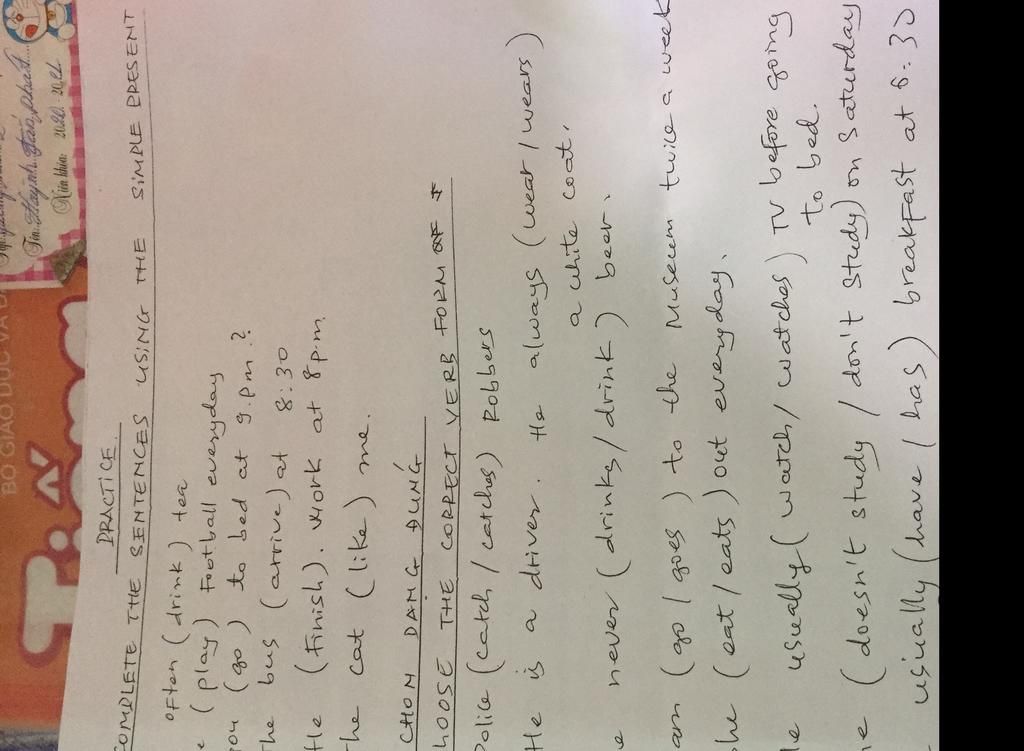 PRACTICE.
COMPLETE THE SENTENCES USING THE SIMPLE PRESENT
often (drink) tea
(play) football everyday
you (go) to bed at 9.pm?
The bus (arrive) at 8:30
He (finish). Work at 8p.m.
The cat (like) me.
CHỌN DẠNG ĐÚNG
CHOOSE THE CORRECT VERB FORM OF
Police (catch / catches) Robbers
He is a driver. He always (wear / wears)
a white coat.
never (drinks / drink) beer.
(go / goes) to the Museum twice a week
She (eat / eats) out everyday.
usually (watch / watches) TV before going
to bed.
(doesn't study / don't study) on Saturday
usually (have / has) breakfast at 6:30
BỘ GIÁO DỤC VÀ
Niên khóa: 2020 - 2021